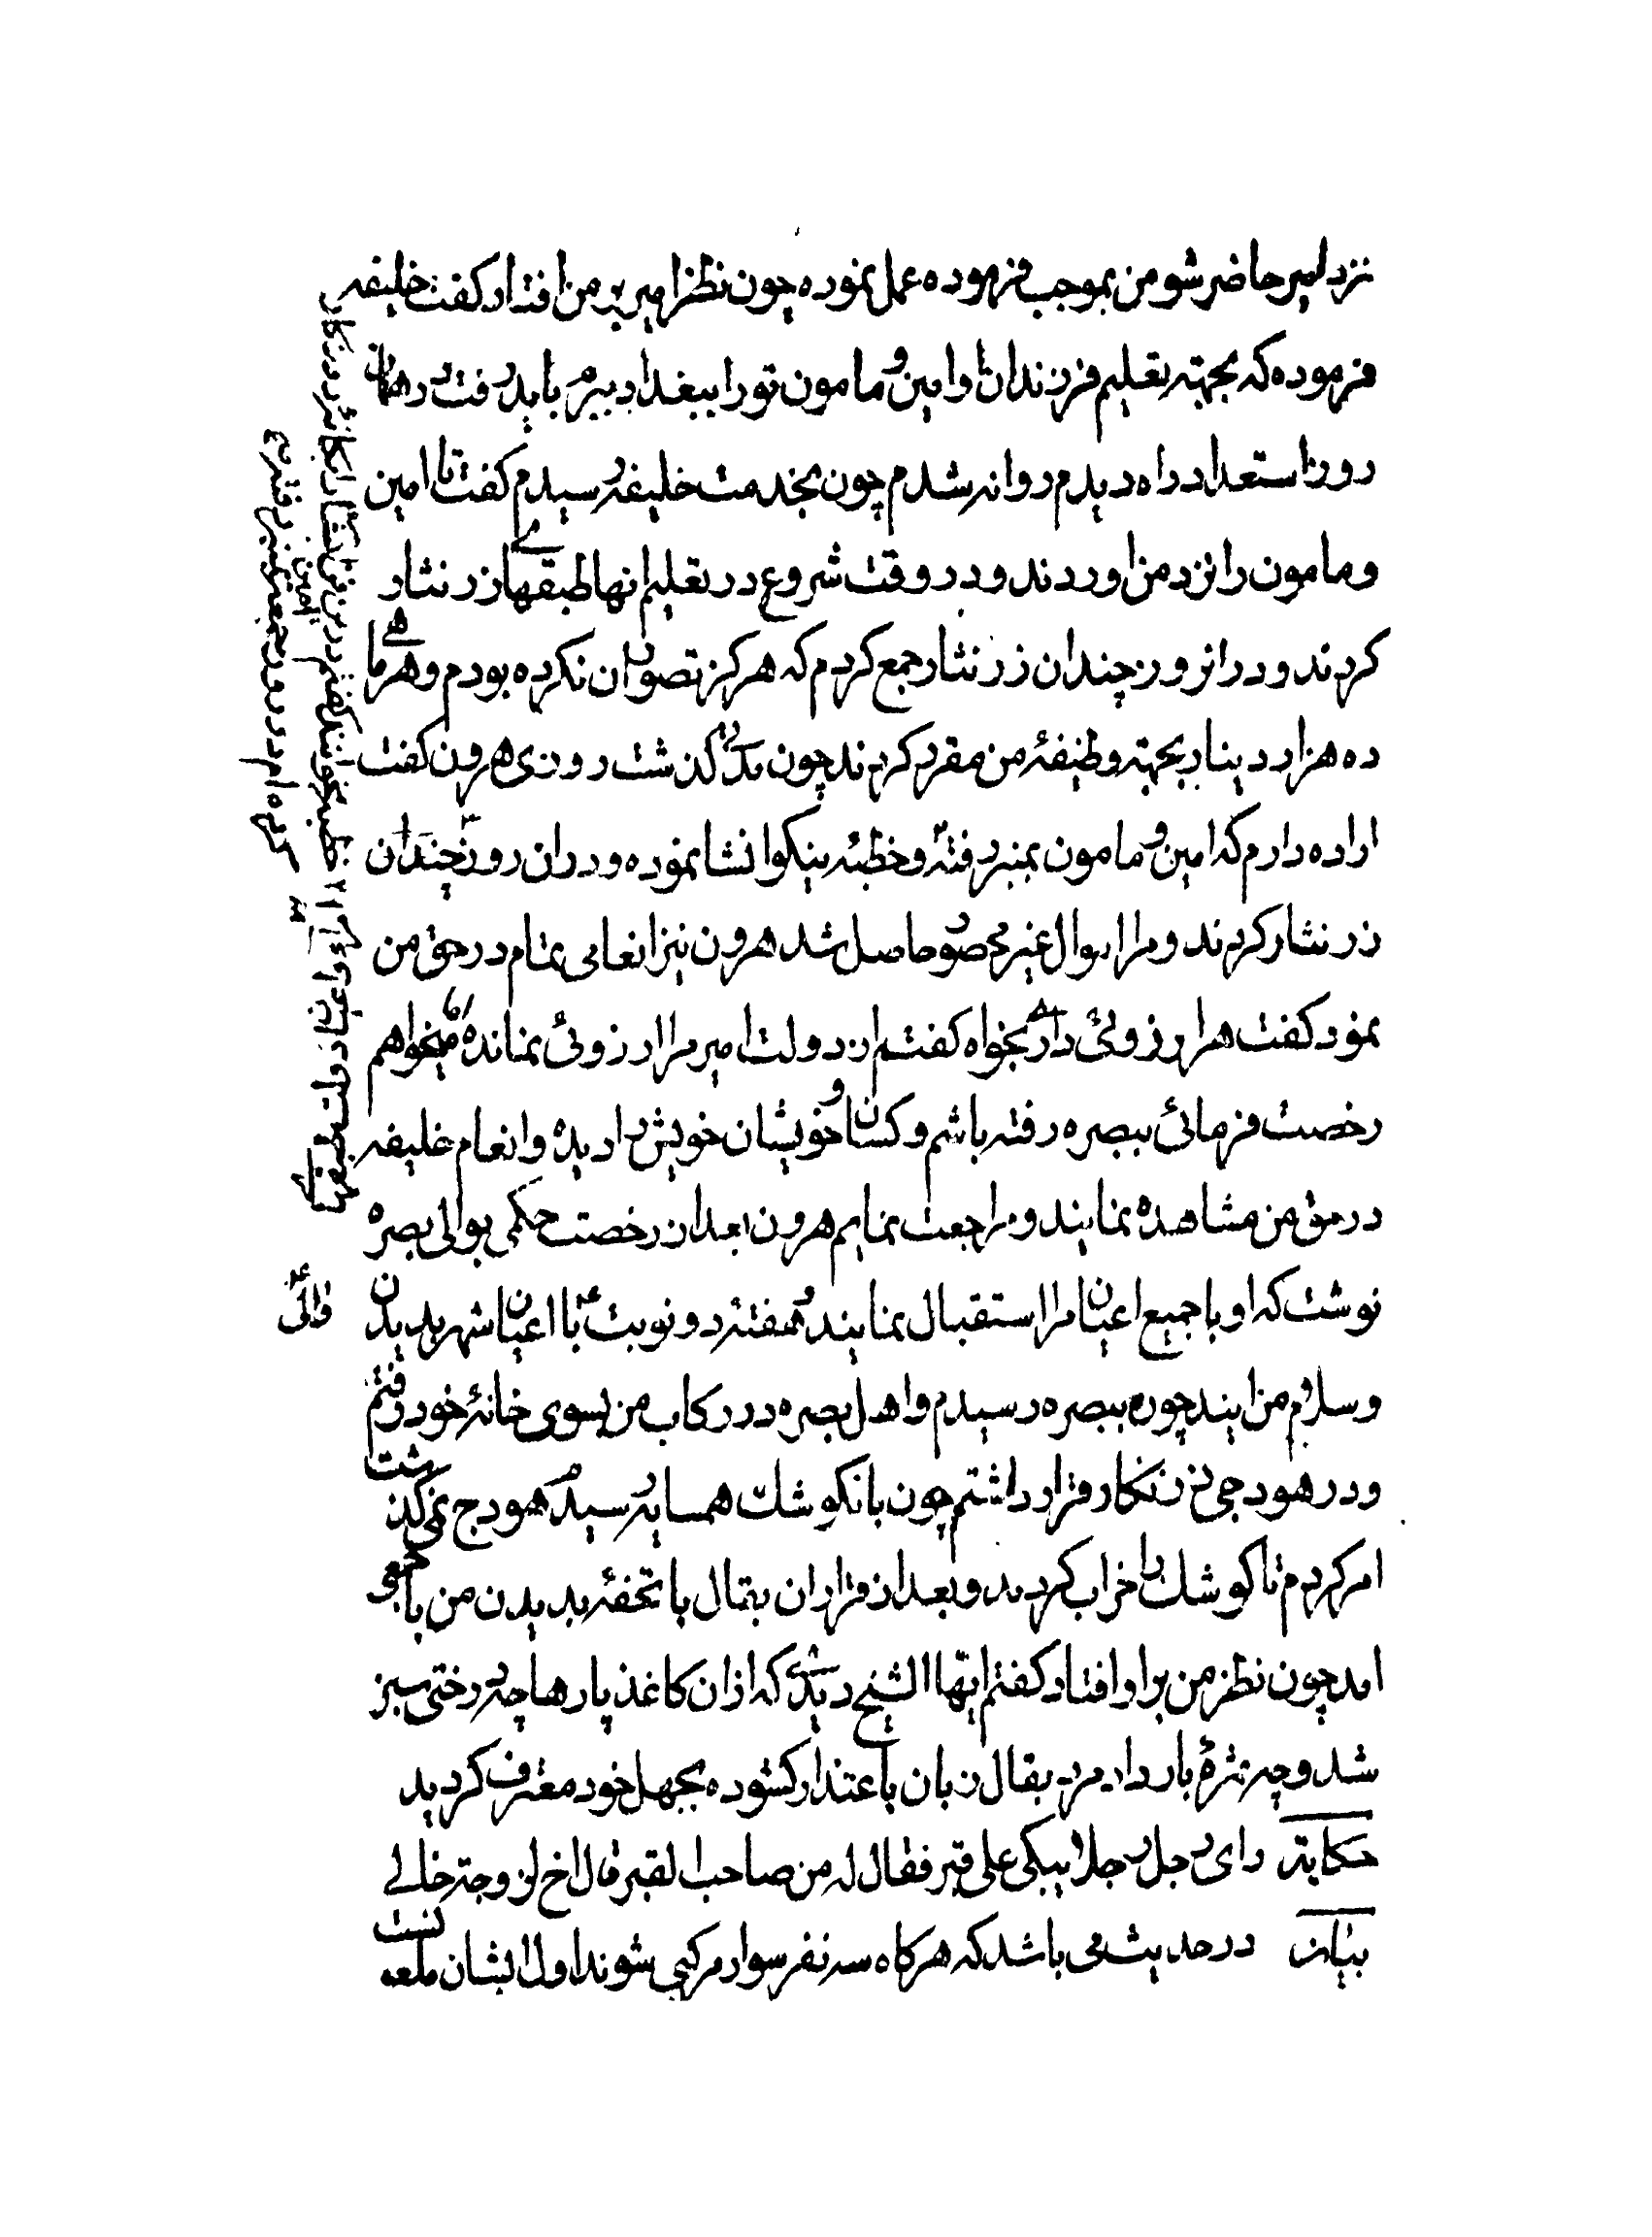 نزد امیر حاضر شو من بموجب فرموده عمل نموده چون نظر امیر بر من افتاد کفت خلیفه
فرموده که بجهته تعلیم فرزندان او امین و مامون تو را ببغداد میرم باید رفت در همان
روز استعداد راه دیدم روانه شدم چون بخدمت خلیفه رسیدم کفت تا امین
و مامون را نزد من اوردند و در وقت شروع در تعلیم انها طبقهای زر نثار
کردند و در انروز چندان زر نثار جمع کردم که هرکز تصور ان نکرده بودم و هر ماهی
ده هزار دینار بجهته وظیفهٔ من مقرر کردند چون مدتی کذشت روزی هرون کفت
اراده دارم که امین و مامون بمنبر رفته و خطبه نیکو انشا نموده و در ان روز چندان
زر نثار کردند و مرا اموال غیر محصور حاصل شد هرون نیز انعامی تمام در حق من
نمود کفت هر ارزوئی داری بخواه کفتم از دولت امیر مرا ارزوئی نمانده اما میخواهم
رخصت فرمائی ببصره رفته باشم و کسان و خویشان خویش را دیده و انعام خلیفه
در حق من مشاهده نمایند و مراجعت نمایم هرون بعد از رخصت حکمی بوالی بصره
نوشت که او با جمیع اعیان مرا استقبال نمایند و هفتهٔ دو نوبت با اعیان شهر بدیدن
و سلام من ایند چون ببصره رسیدم و اهل بصره در رکاب من بسوی خانهٔ خود رفتم
و در هودجی زرنکار قرار داشتم چون بانکوشک همسایه رسید هودج نمی کذشت
امر کردم تا کوشک را خراب کردند و بعد از قرار ان بقال با تحفهٔ بدیدن من با جمعی
امد چون نظر من بر او افتاد کفتم ایها الشیخ دیدی که از ان کاغذ پارها چه درختی سبز
شد و چه ثمرهٔ بار داد مرد بقال زبان باعتذار کشوده بجهل خود معترف کردید
حکایة رای رجل رجلا یبکی علی قبر فقال له من صاحب القبر قال اخ لزوجة خالی
بیان در حدیث می باشد که هرکاه سه نفر سوار مرکبی شوند اول ایشان ملعونست
والی